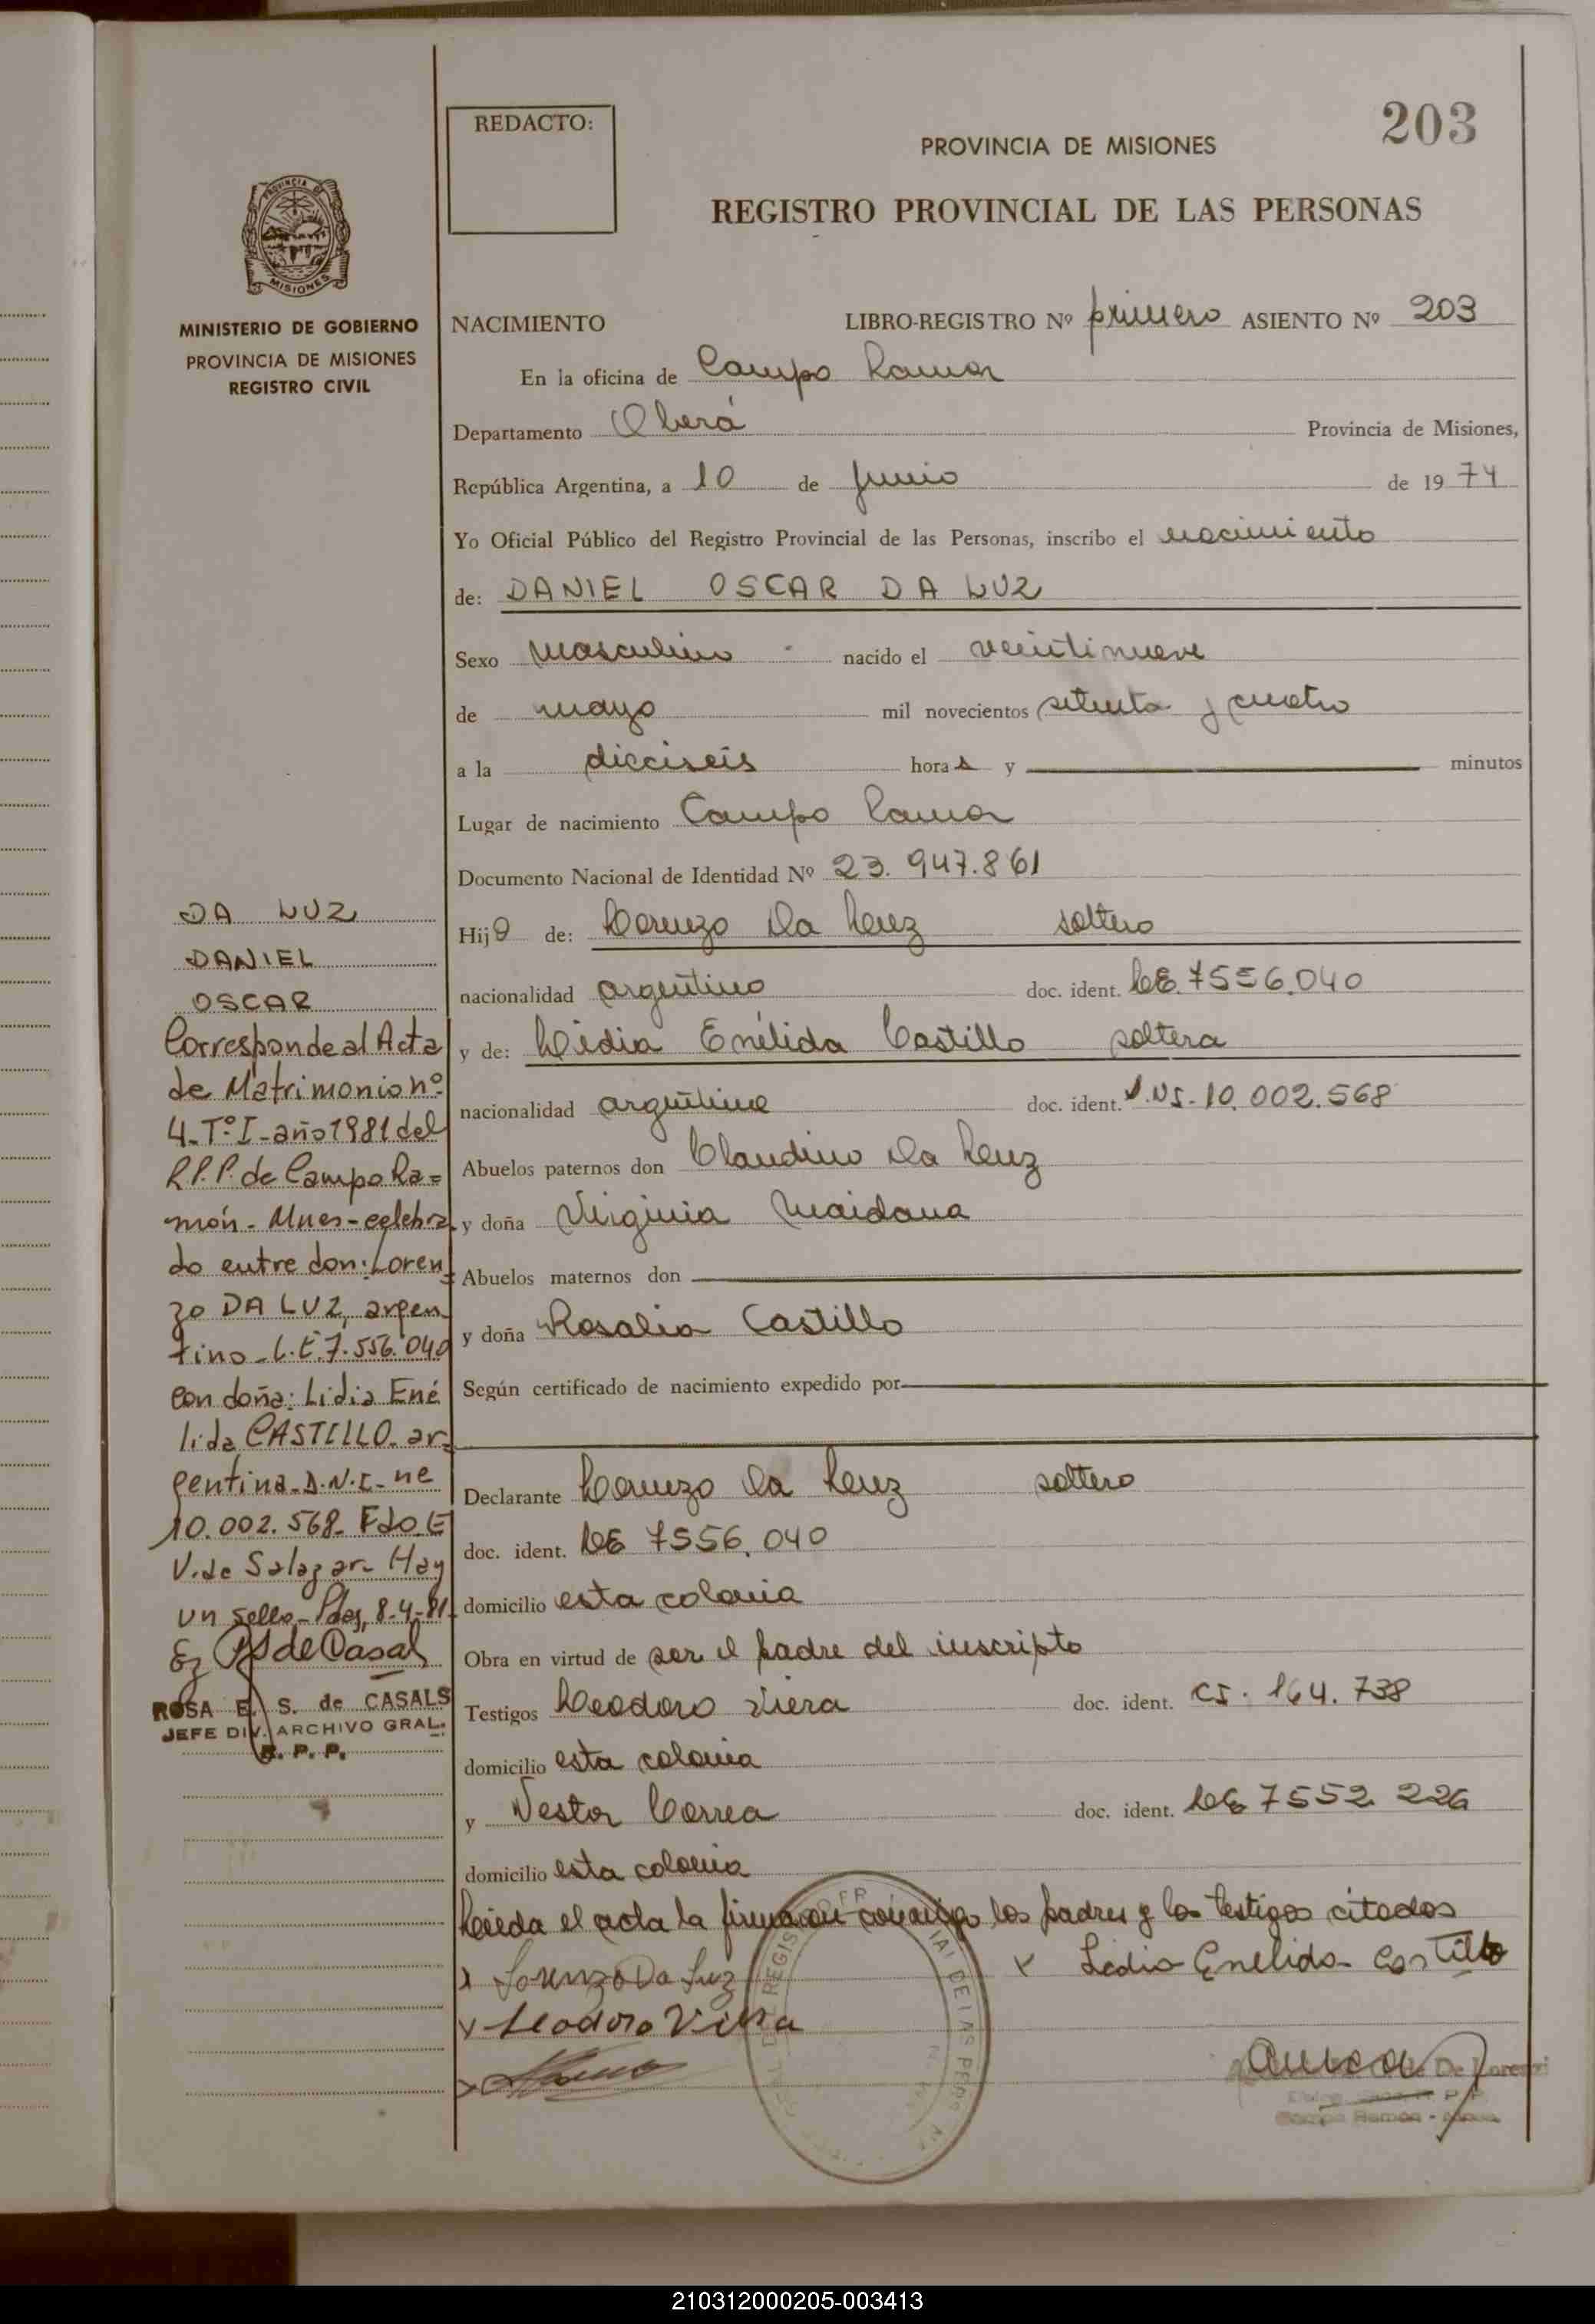 203
REDACTO:
PROVINCIA DE MISIONES
REGISTRO PROVINCIAL DE LAS PERSONAS
PROVINCIA DE
MISIONES
MINISTERIO DE GOBIERNO
PROVINCIA DE MISIONES
REGISTRO CIVIL
NACIMIENTO LIBRO-REGISTRO Nº primero ASIENTO Nº 203
En la oficina de Campo Ramon
Departamento Oberá Provincia de Misiones,
República Argentina, a 10 de Junio de 1974
Yo Oficial Público del Registro Provincial de las Personas, inscribo el nacimiento
de: DANIEL OSCAR DA LUZ
Sexo masculino nacido el veintinueve
de mayo mil novecientos setenta y cuatro
a la dieciseis horas y minutos
Lugar de nacimiento Campo Ramon
Documento Nacional de Identidad Nº 23.947.861
Hijo de: Lorenzo Da Luz soltero
nacionalidad argentino doc. ident. LE. 7556.040
y de: Lidia Enélida Castillo soltera
nacionalidad argentina doc. ident. D.NI. 10.002.568
Abuelos paternos don Claudino Da Luz
y doña Virginia Maidana
Abuelos maternos don
y doña Rosalia Castillo
Según certificado de nacimiento expedido por
Declarante Lorenzo Da Luz soltero
doc. ident. LE 7556.040
domicilio esta colonia
Obra en virtud de ser el padre del inscripto
Testigos Leodoro Viera doc. ident. CI. 164.738
domicilio esta colonia
y Nestor Correa doc. ident. LE 7552.226
domicilio esta colonia
Leida el acta la firman conmigo los padres y los testigos citados
x Lorenzo Da Luz x Lidia Enelida Castillo
x Leodoro Viera
x
De Lorenzi
R. P. P.
Campo Ramon
DA LUZ
DANIEL
OSCAR
Corresponde al Acta
de Matrimonio nº
4-Tº I-año 1981 del
R.P.P. de Campo Ra=
món- Mnes- celebra
do entre don: Loren=
zo DA LUZ, argen
tino- L.E. 7.556.040
con doña: Lidia Ené
lida CASTILLO- ar=
gentina- D.N.I- nº
10.002.568- Fdo. E
V. de Salazar- Hay
un sello- Pdas, 8-4-81-
de Casals
ROSA E. S. de CASALS
JEFE DIV. ARCHIVO GRAL.
R. P. P.
210312000205-003413